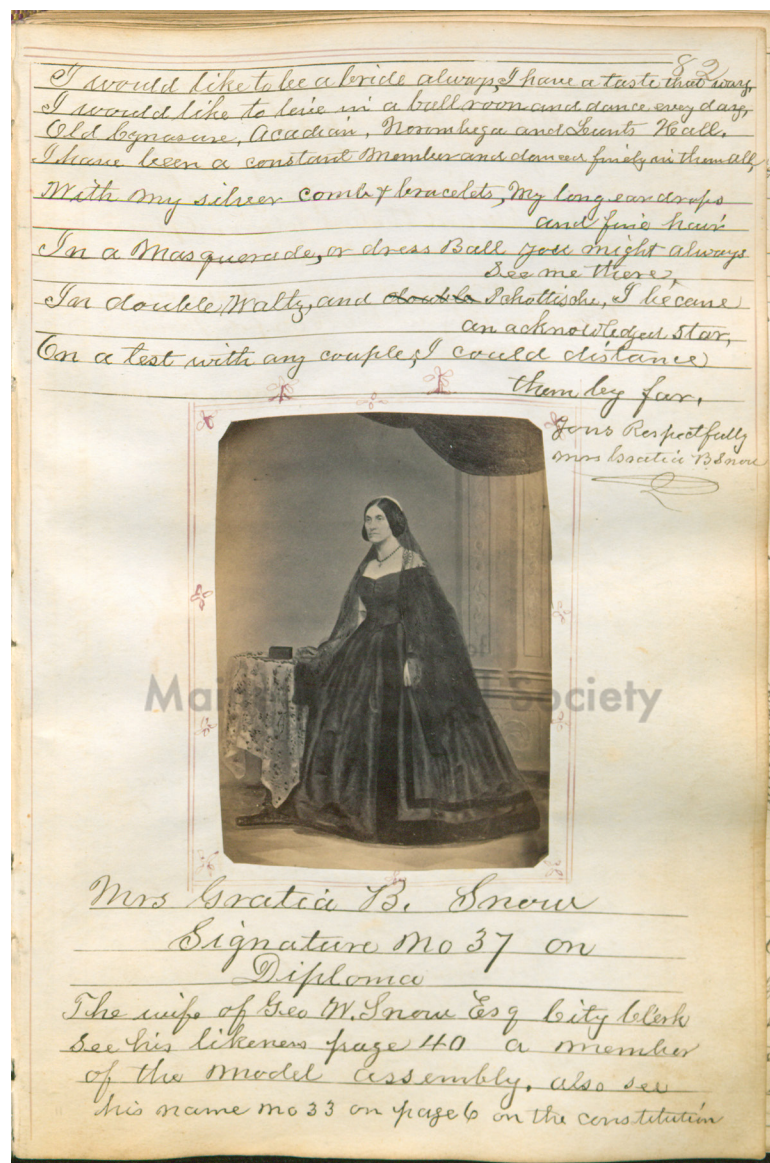 82
I would like to be a bride always, I have a taste that way,
I would like to live in a ball room and dance every day,
Old Cynasure, Acadian, Norombega and Lunts Hall,
I have been a constant Member and danced finely in them all,
With my silver comb & bracelets, My long ear drops
and fine hair
In a Masquerade, or dress Ball you might always
see me there,
In double Waltz, and double Schottische, I became
an acknowledged star,
On a test with any couple, I could distance
them by far.
Yours Respectfully
Mrs Gratia B. Snow
Maine Historical Society
Mrs Gratia B. Snow
Signature No 37 on
Diploma
The wife of Geo W. Snow Esq City Clerk
see his likeness page 40 a member
of the Model assembly, also see
his name No 33 on page 6 on the constitution